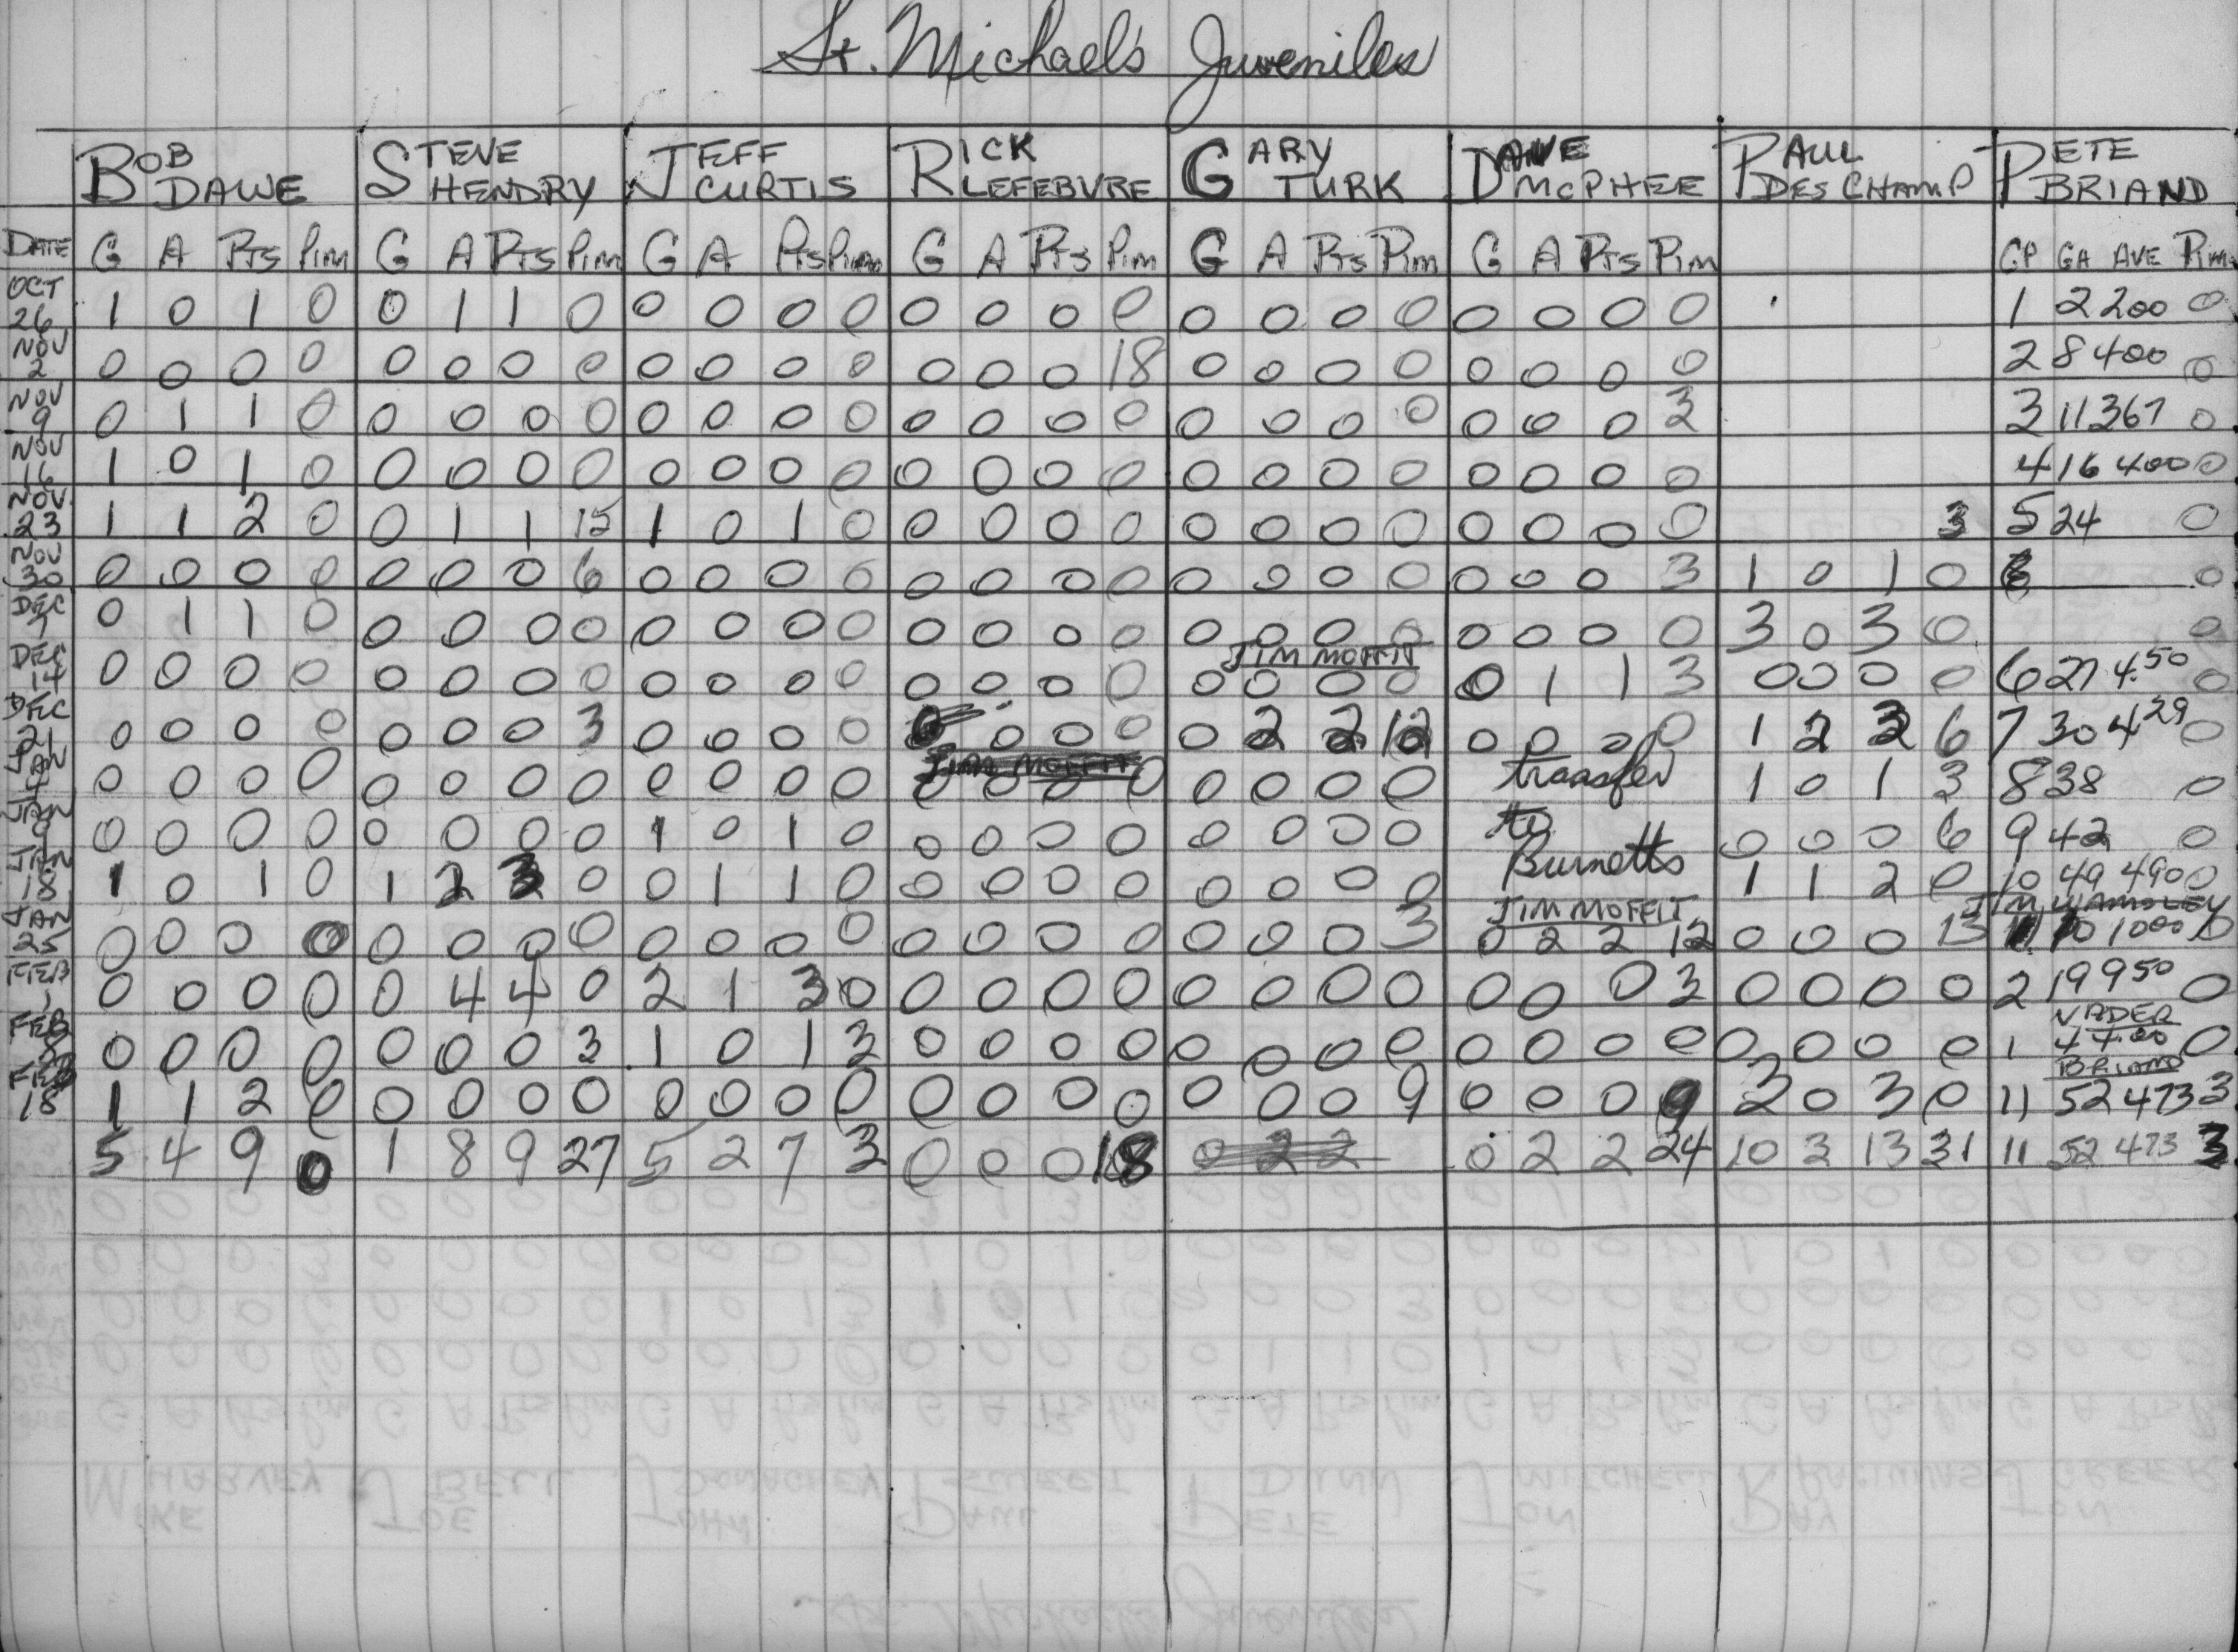 St. Michael's Juveniles
BOB DAWE STEVE HENDRY JEFF CURTIS RICK LEFEBVRE GARY TURK DAVE MCPHEE PAUL DESCHAMP PETE BRIAND
DATE G A PTS Pim G A PTS Pim G A PTS Pim G A PTS Pim G A PTS Pim G A PTS Pim GP GA AVE Pim
OCT 26 1 0 1 0 0 1 1 0 0 0 0 0 0 0 0 0 0 0 0 0 0 0 0 0 1 2 200 0
NOV 2 0 0 0 0 0 0 0 0 0 0 0 0 0 0 0 18 0 0 0 0 0 0 0 0 2 8 400 0
NOV 9 0 1 1 0 0 0 0 0 0 0 0 0 0 0 0 0 0 0 0 0 0 0 0 3 3 11 367 0
NOV 16 1 0 1 0 0 0 0 0 0 0 0 0 0 0 0 0 0 0 0 0 0 0 0 0 4 16 400 0
NOV. 23 1 1 2 0 0 1 1 15 1 0 1 0 0 0 0 0 0 0 0 0 0 0 0 0 3 5 24 0
NOV 30 0 0 0 0 0 0 0 6 0 0 0 0 0 0 0 0 0 0 0 0 0 0 0 3 1 0 1 0 0
DEC 7 0 1 1 0 0 0 0 0 0 0 0 0 0 0 0 0 0 0 0 0 0 0 0 0 3 0 3 0 0
JIM MOFFIT
DEC 14 0 0 0 0 0 0 0 0 0 0 0 0 0 0 0 0 0 0 0 0 0 1 1 3 0 0 0 0 6 27 4.50 0
DEC 21 0 0 0 0 0 0 0 3 0 0 0 0 0 0 0 0 0 2 2 12 0 0 0 0 1 2 3 6 7 30 4 29 0
JIM MOFFIT
JAN 4 0 0 0 0 0 0 0 0 0 0 0 0 0 0 0 0 0 0 0 0 transfer 1 0 1 3 8 38 0
JAN 0 0 0 0 0 0 0 0 1 0 1 0 0 0 0 0 0 0 0 0 to 0 0 0 6 9 42 0
JAN 18 1 0 1 0 1 2 3 0 0 1 1 0 0 0 0 0 0 0 0 0 Burnetts 1 1 2 0 10 49 490 0
JIM MOFFIT JIM WAMSLEY
JAN 25 0 0 0 0 0 0 0 0 0 0 0 0 0 0 0 0 0 0 0 3 0 2 2 12 0 0 0 13 1 10 1000 0
FEB 1 0 0 0 0 0 4 4 0 2 1 3 0 0 0 0 0 0 0 0 0 0 0 0 3 0 0 0 0 2 19 9 50 0
NADER
FEB 8 0 0 0 0 0 0 0 3 1 0 1 3 0 0 0 0 0 0 0 0 0 0 0 0 0 0 0 0 1 4 4.00 0
BRIAND
FEB 18 1 1 2 0 0 0 0 0 0 0 0 0 0 0 0 0 0 0 0 9 0 0 0 9 3 0 3 0 11 52 473 3
5 4 9 0 1 8 9 27 5 2 7 3 0 0 0 18 0 2 2 0 2 2 24 10 3 13 31 11 52 473 3